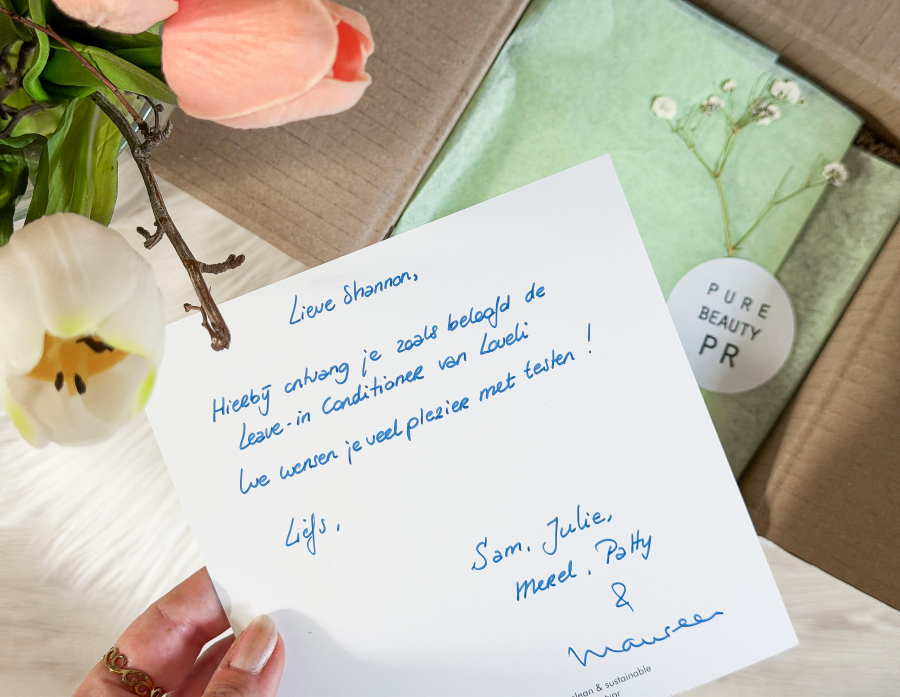 Lieve Shannon,
Hierbij ontvang je zoals beloofd de
Leave-in Conditioner van Loveli
We wensen je veel plezier met testen!
Liefs,
Sam, Julie,
Merel, Patty
&
Maureen
clean & sustainable
PURE
BEAUTY
PR